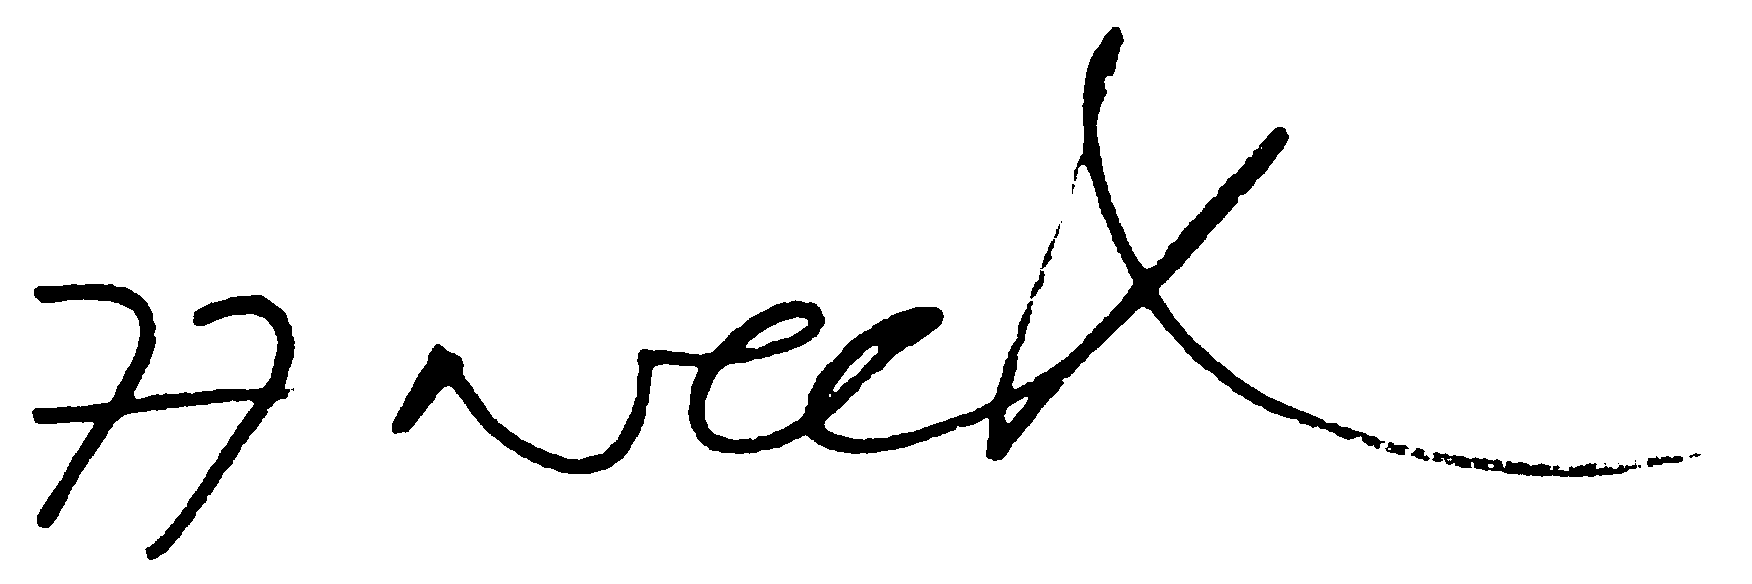 77 week